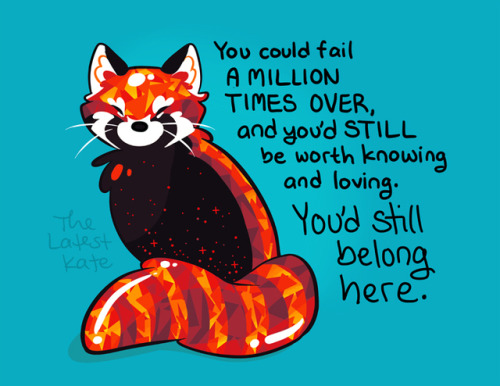 You could fail
A MILLION
TIMES OVER,
and you'd STILL
be worth knowing
and loving.
You'd still
belong
here.
The
Latest
Kate